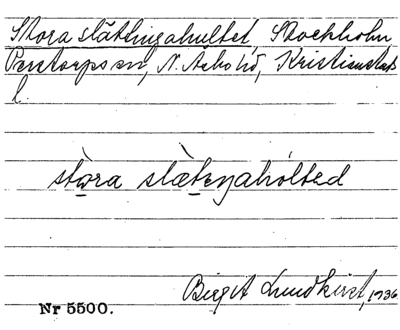 Stora slättingahultet, Stockholm
Perstorps sn, N. Åsbo hd, Kristianstads
l.
stora slæteŋahólted
Birgit Lundkvist, 1936.
Nr 5500.